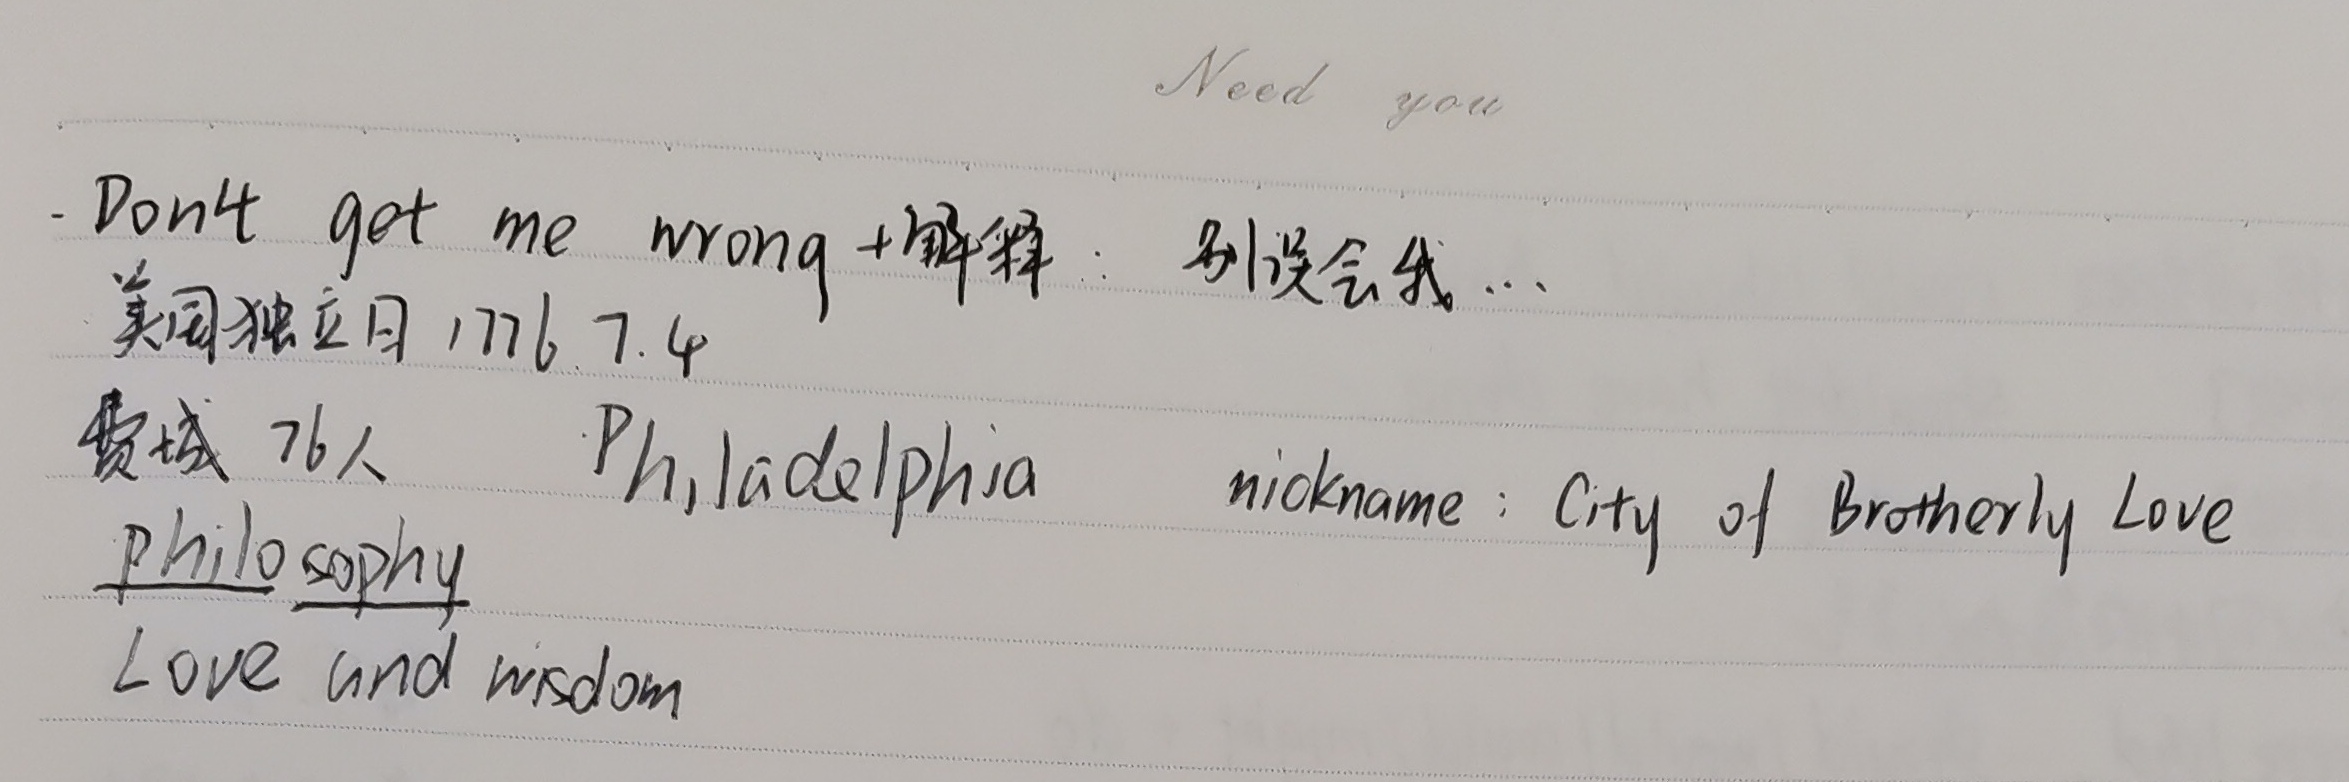 Need you
- Don't get me wrong +解释: 别误会我...
美国独立日 1776.7.4
费城 76人 Philadelphia nickname: City of Brotherly Love
philosophy
Love and wisdom